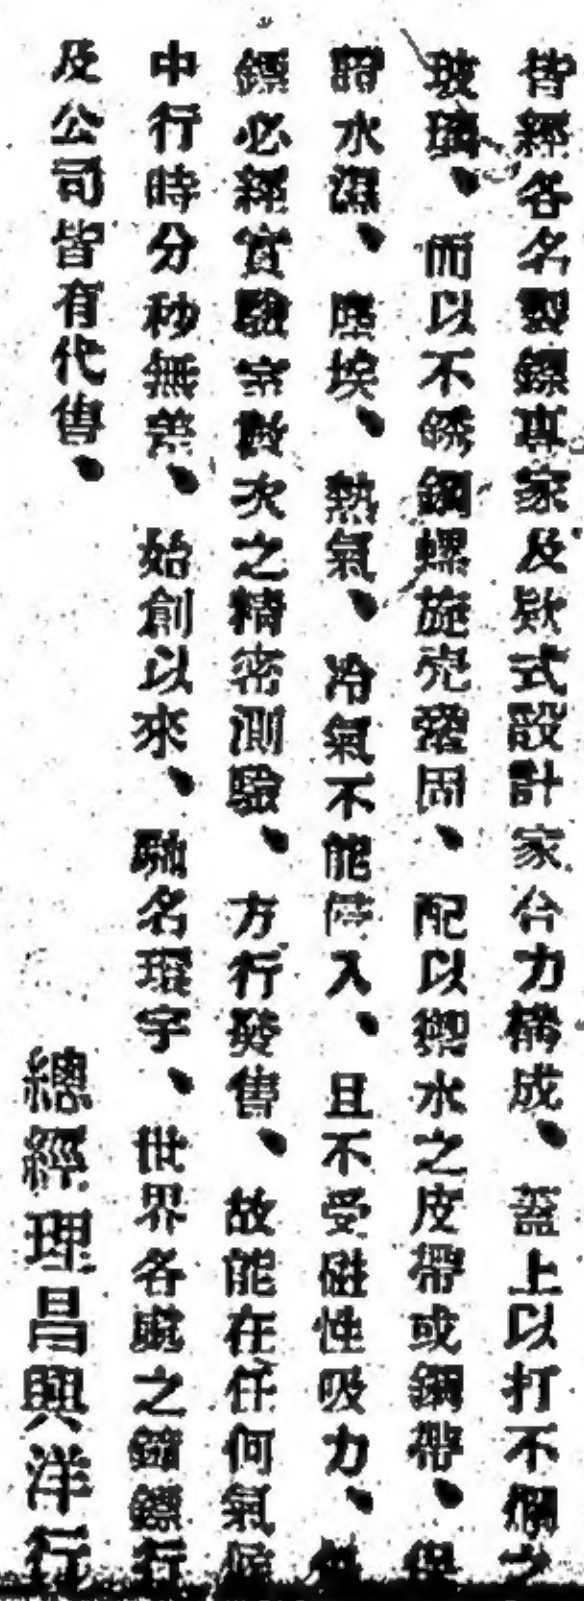 皆經各名製鏢專家及欵式設計家合力構成、蓋上以打不爛之
玻璃、而以不銹鋼螺旋壳鞏固、配以禦水之皮帶或鋼帶、俱
水濕、塵埃、熱氣、冷氣不能侵入、且不受磁性吸力、
鏢必經實驗室數次之精密測驗、方行發售、故能在任何氣候
中行時分秒無差、始創以來、馳名環宇、世界各處之鐘鏢行
及公司皆有代售、
總經理昌興洋行